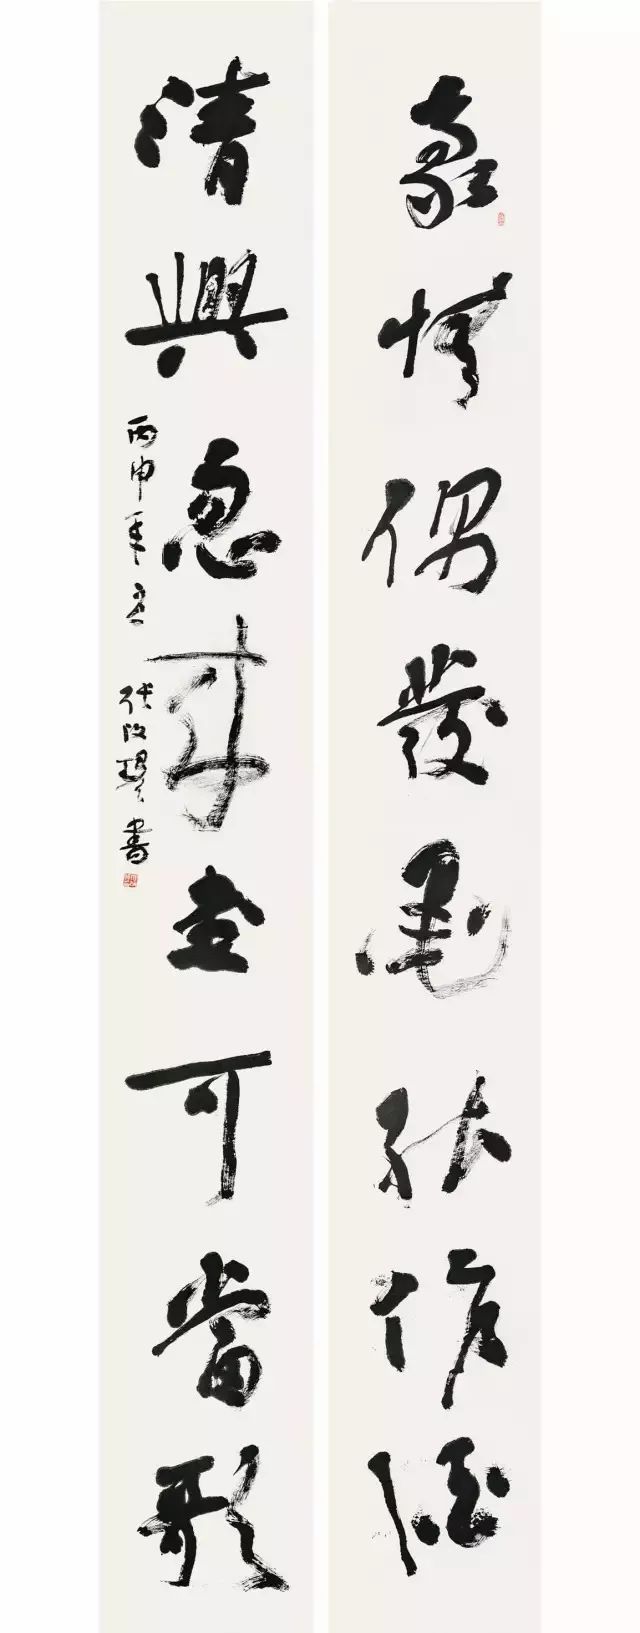 豪情偶發墨能作酒
清興忽來畫可當歌
丙申年
張改琴書